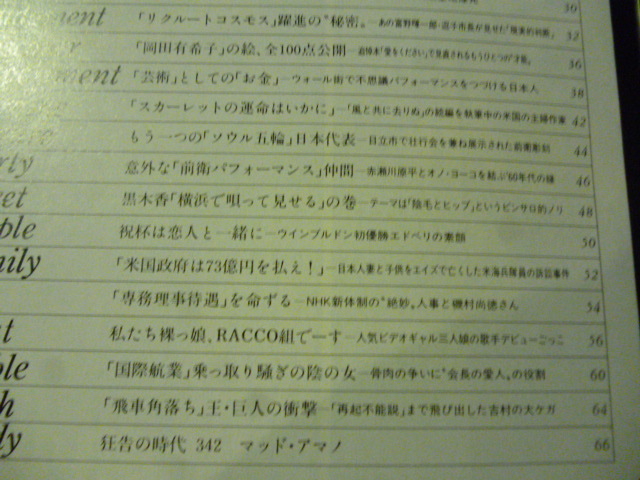 30
「リクルートコスモス」躍進の"秘密。 32
「岡田有希子」の絵、全100点公開 36
「芸術」としての「お金」―ウォール街で不思議パフォーマンスをつづける日本人 38
「スカーレットの運命はいかに」―「風と共に去りぬ」の続編を執筆中の米国の主婦作家 42
もう一つの「ソウル五輪」日本代表―日立市で壮行会を兼ね展示された前衛彫刻 44
rty 意外な「前衛パフォーマンス」仲間―赤瀬川原平とオノ・ヨーコを結ぶ'60年代の縁 46
eet 黒木香「横浜で唄って見せる」の巻―テーマは「陰毛とヒップ」というピンサロ的ノリ 48
ble 祝杯は恋人と一緒に―ウインブルドン初優勝エドベリの素顔 50
mily 「米国政府は73億円を払え!」―日本人妻と子供をエイズで亡くした米海兵隊員の訴訟事件 52
「専務理事待遇」を命ずる―NHK新体制の"絶妙。人事と磯村尚徳さん 54
t 私たち裸っ娘、RACCO組でーす―人気ビデオギャル三人娘の歌手デビューごっこ 56
ble 「国際航業」乗っ取り騒ぎの陰の女―骨肉の争いに"会長の愛人。の役割 60
h 「飛車角落ち」王・巨人の衝撃―「再起不能説」まで飛び出した吉村の大ケガ 64
ly 狂告の時代 342 マッド・アマノ 66